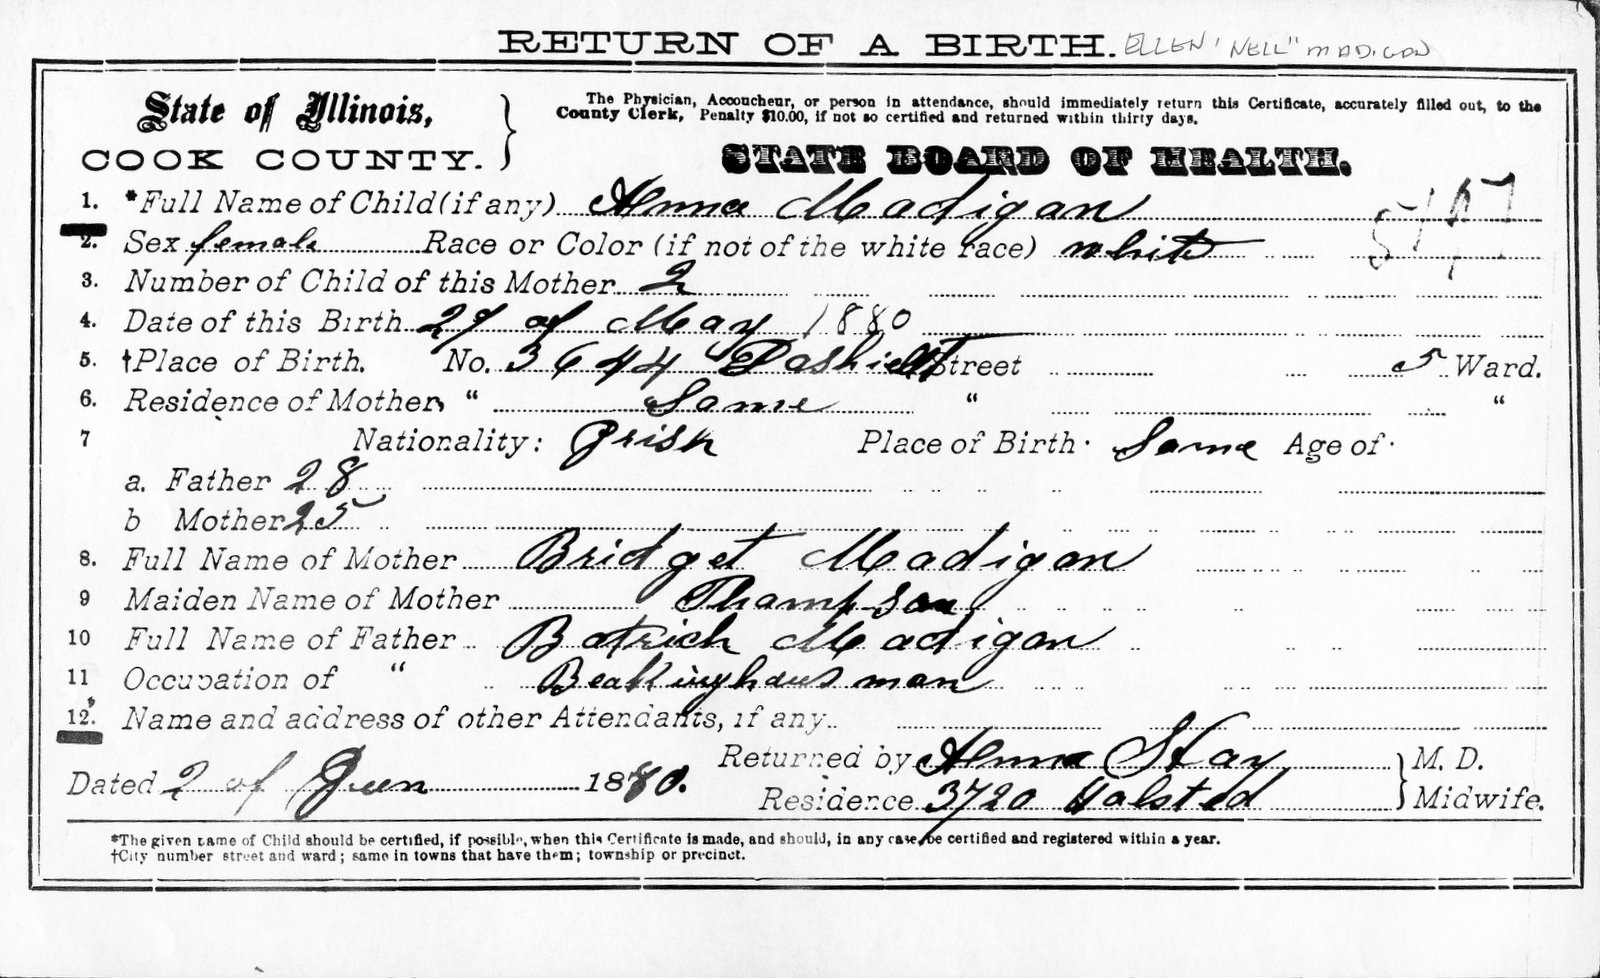 RETURN OF A BIRTH. ELLEN "NELL" MADIGAN
State of Illinois,
COOK COUNTY.
The Physician, Accoucheur, or person in attendance, should immediately return this Certificate, accurately filled out, to the
County Clerk, Penalty $10.00, if not so certified and returned within thirty days.
STATE BOARD OF HEALTH.
1. *Full Name of Child (if any) Anna Madigan
2. Sex female Race or Color (if not of the white race) white
3. Number of Child of this Mother 2
4. Date of this Birth 27 of May 1880
5. †Place of Birth. No. 3644 Dashiell Street 5 Ward.
6. Residence of Mother, " Same " "
7 Nationality: Irish Place of Birth Same Age of
a. Father 28
b Mother 25
8. Full Name of Mother Bridget Madigan
9 Maiden Name of Mother Thampson
10 Full Name of Father Batrich Madigan
11 Occupation of " man
12. Name and address of other Attendants, if any
Returned by Anna Stay M. D.
Dated 2 of Juen 1880.
Residence 3720 Halsted Midwife.
*The given name of Child should be certified, if possible, when this Certificate is made, and should, in any case be certified and registered within a year.
†City number street and ward; same in towns that have them; township or precinct.